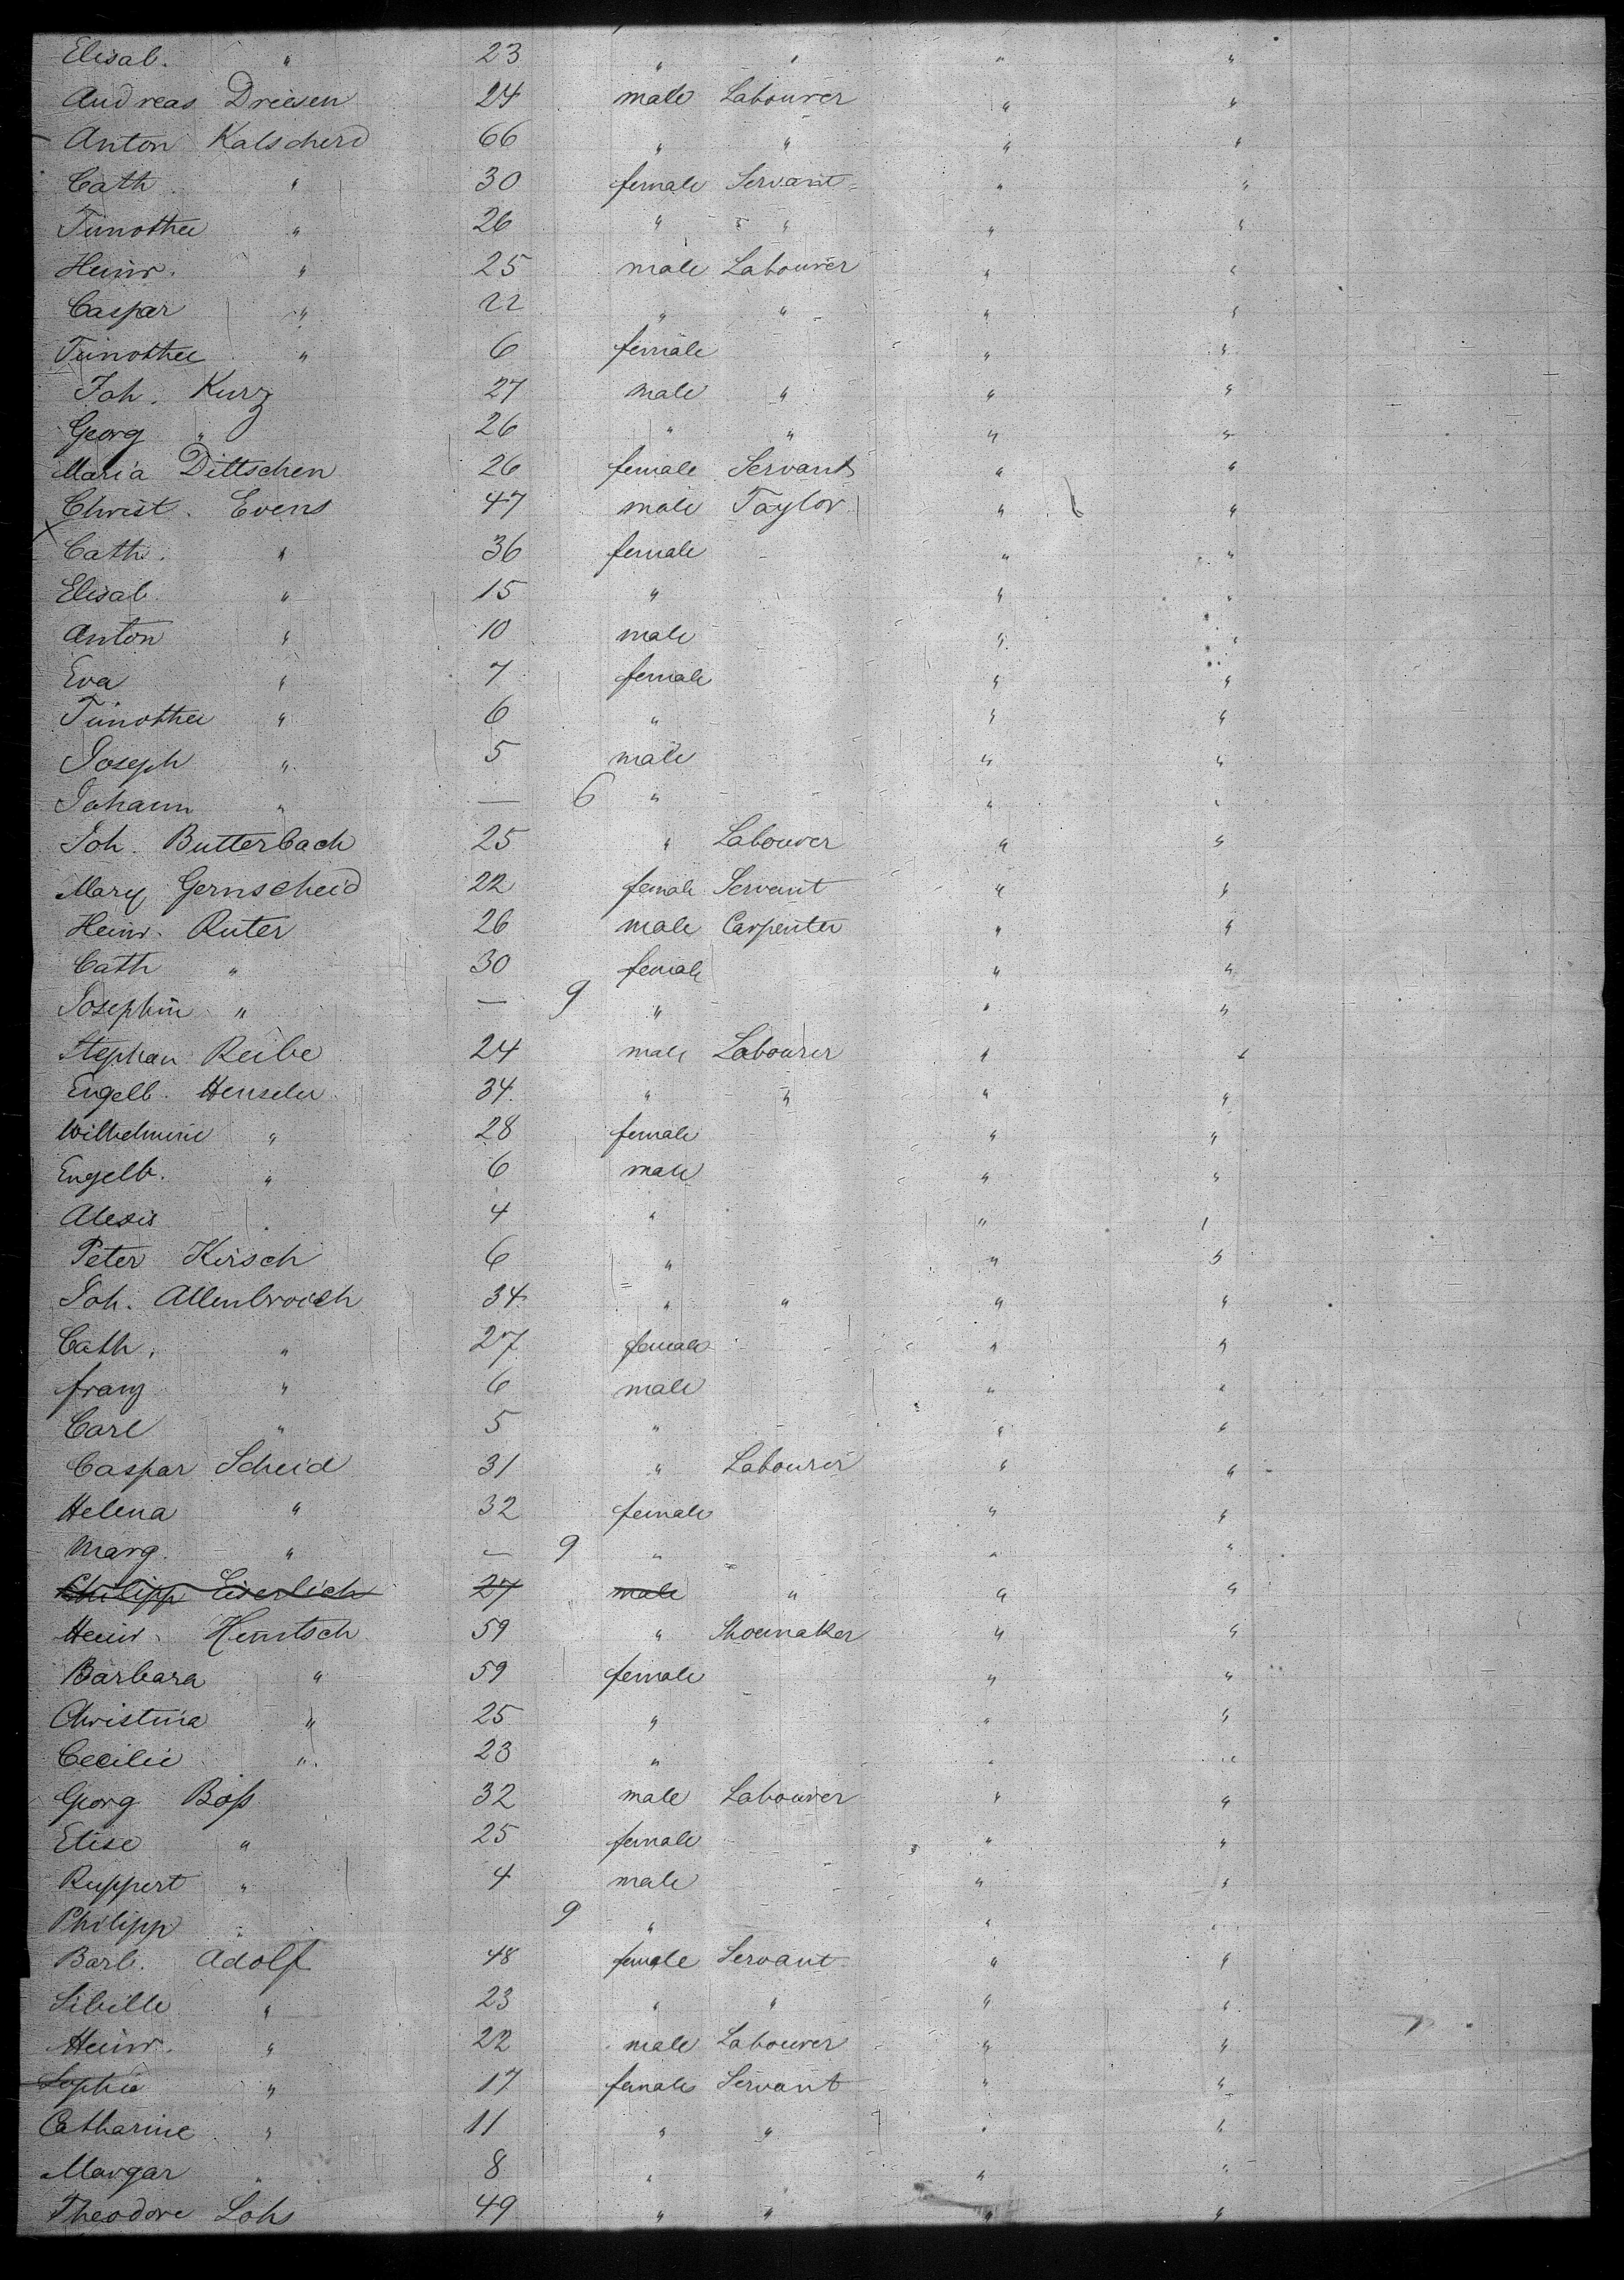 Elisab. " 23 " " " "
Andreas Driesen 24 male Labourer " "
Anton Kalscherd 66 " " " "
Cath. " 30 female Servant " "
Timothee " 26 " " " "
Heinr. " 25 male Labourer " "
Caspar " 22 " " " "
Timothee " 6 female " "
Joh. Kurz 27 male " " "
Georg " 26 " " " "
Maria Dittschen 26 female Servant " "
Christ. Evens 47 male Taylor " "
Cath. " 36 female " "
Elisab. " 15 " " "
Anton " 10 male " "
Eva " 7 female " "
Timothee " 6 " " "
Joseph " 5 male " "
Johann " — 6 " " "
Joh. Butterbach 25 " Labourer " "
Mary Gernscheid 22 female Servant " "
Heinr. Ruter 26 male Carpenter " "
Cath " 30 female " "
Josephin " — 9 " " "
Stephan Reibe 24 male Labourer " "
Engelb. Henseler 34 " " " "
Wilhelmine " 28 female " "
Engelb. " 6 male " "
Alexis " 4 " " "
Peter Kirsch 6 " " "
Joh. Allenbroich 34 " " " "
Cath. " 27 female " "
Franz " 6 male " "
Carl " 5 " " "
Caspar Scheid 31 " Labourer " "
Helena " 32 female " "
Marg. " — 9 " " "
Philipp Eiserlich 27 male " " "
Heinr. Hentsch 59 " Shoemaker " "
Barbara " 59 female " "
Christina " 25 " " "
Cecilie " 23 " " "
Georg Boß 32 male Labourer " "
Elise " 25 female " "
Ruppert " 4 male " "
Philipp " 9 " " "
Barb. Adolf 48 female Servant " "
Sibille " 23 " " " "
Heinr. " 22 male Labourer " "
Sophie " 17 female Servant " "
Catharine " 11 " " " "
Margar " 8 " " "
Theodore Lohs 49 " " " "